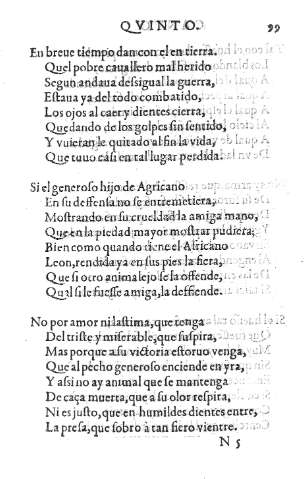 QVINTO. 99
En breue tiempo dan con el en tierra.
Quel pobre cauallero mal herido
Segun andaua dessigual la guerra,
Estaua ya del todo combatido,
Los ojos al caer y dientes cierra,
Quedando de los golpes sin sentido,
Y vuieran le quitado al fin la vida,
Que tuuo casi en tal lugar perdida.
Si el generoso hijo de Agricano
En su deffensa no se entremetiera,
Mostrando en su crueldad la amiga mano,
Que en la piedad mayor mostrar pudiera,
Bien como quando tiene el Africano
Leon, rendida ya en sus pies la fiera,
Que si otro animalejo se la offende,
Qual si le fuesse amiga, la deffiende.
No por amor ni lastima, que tenga
Del triste y miserable, que suspira,
Mas porque a su victoria estoruo venga,
Que al pecho generoso enciende en yra,
Y assi no ay animal que se mantenga
De caça muerta, que a su olor respira,
Ni es justo, que en humildes dientes entre,
La presa, que sobrò à tan fiero vientre.
N 5